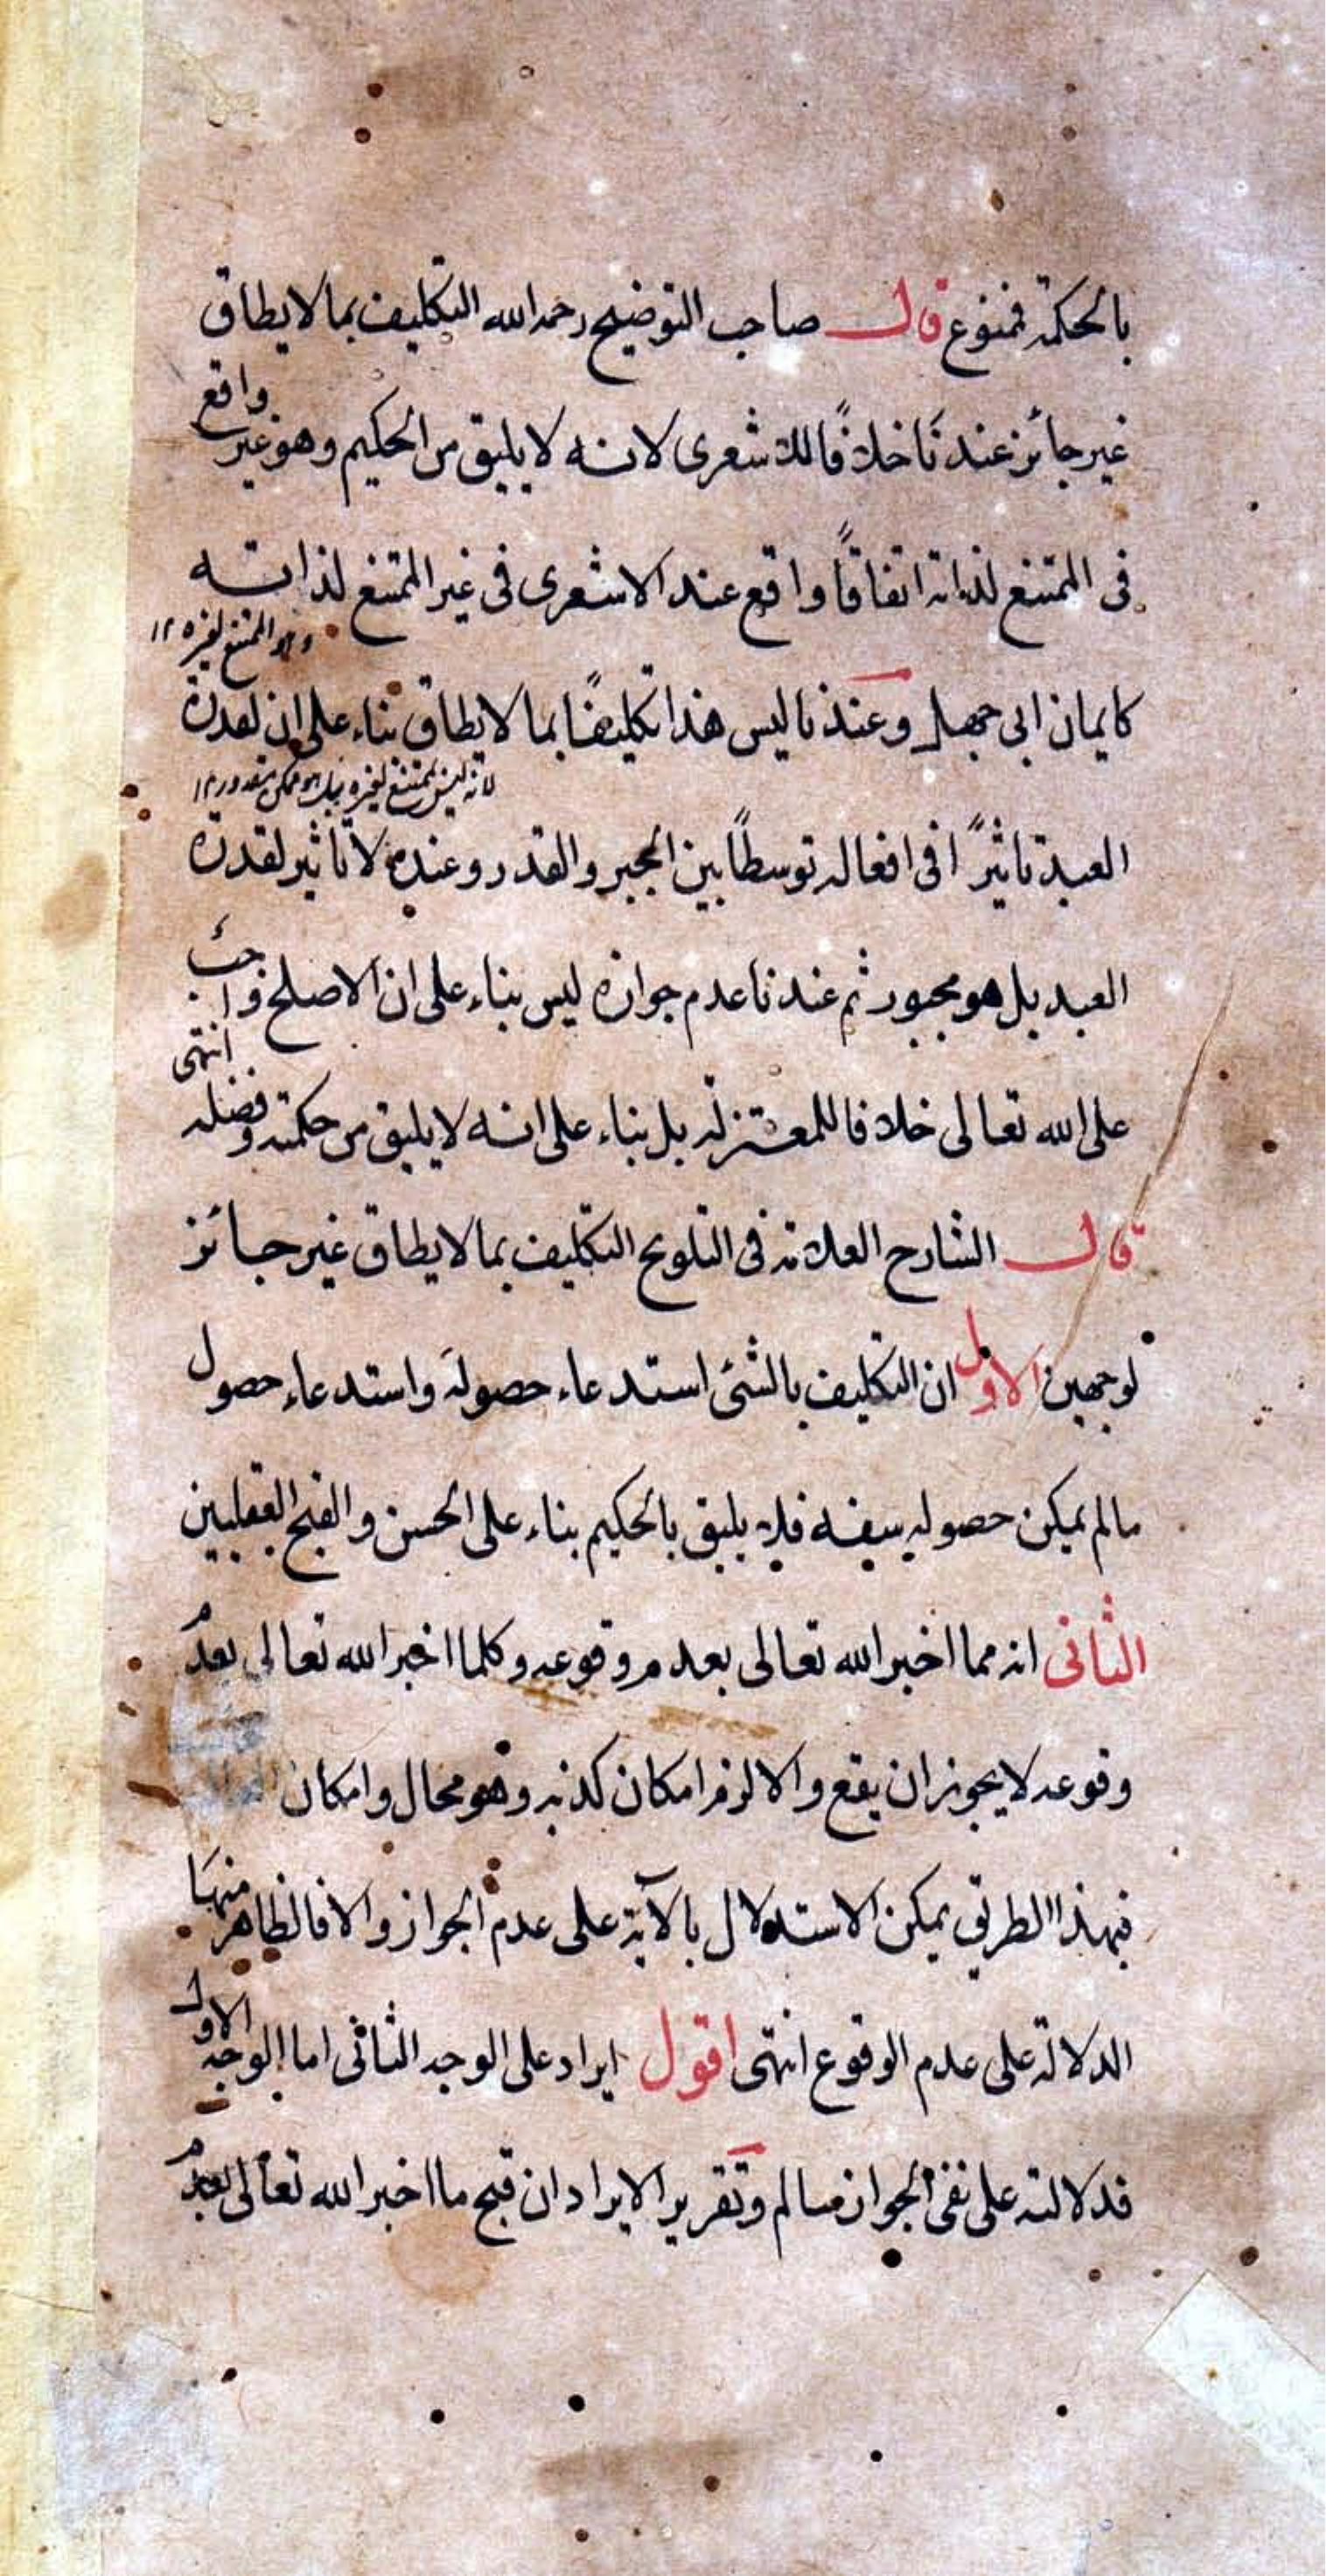 بالحكمة فممنوع قال صاحب التوضيح رحمه الله التكليف بما لا يطاق
غير جائز عندنا خلافًا للاشعرى لانه لا يليق من الحكيم وهو غير واقع
فى الممتنع لذاته اتفاقًا واقع عند الاشعرى فى غير الممتنع لذاته
وهو الممتنع لغيره ١٢
كايمان ابى جهل وعندنا ليس هذا تكليفًا بما لا يطاق بناء على ان لقدرة
لانه ليس بممتنع لغيره بل هو ممكن مقدور ١٢
العبد تاثيرًا فى افعاله توسطًا بين الجبر والقدر وعنده لا تاثير لقدرة
العبد بل هو مجبور ثم عندنا عدم جوازه ليس بناء على ان الاصلح واجب
على الله تعالى خلافا للمعتزلة بل بناء على انه لا يليق من حكمته وفضله انتهى
قال الشارح العلامة فى التلويح التكليف بما لا يطاق غير جائز
لوجهين الاول ان التكليف بالشئ استدعاء حصوله واستدعاء حصول
مالم يمكن حصوله سفه فلا يليق بالحكيم بناء على الحسن والقبح العقليين
الثانى انه مما اخبر الله تعالى بعدم وقوعه وكلما اخبر الله تعالى بعدم
وقوعه لا يجوز ان يقع والا لزم امكان كذبه وهو محال وامكان
فبهذا الطريق يمكن الاستدلال بالآية على عدم الجواز والا فالظاهر منها
الدلالة على عدم الوقوع انتهى اقول ايراد على الوجه الثانى اما الوجه الاول
فدلالته على نفى الجواز مسالم وتقرير الايراد ان قبح ما اخبر الله تعالى بعدم